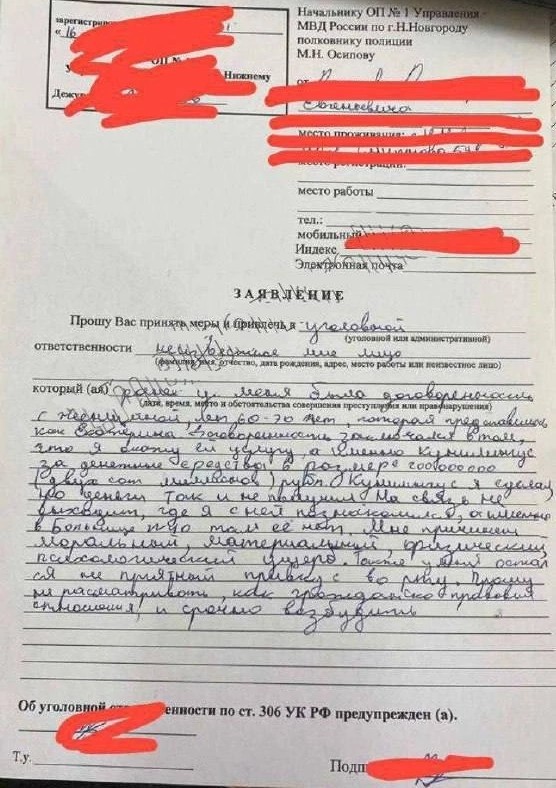 Начальнику ОП № 1 Управления
МВД России по г.Н.Новгороду
полковнику полиции
М.Н. Осипову
зарегистрир
« 16
ОП №
Нижнему
Дежу
от
Евгеньевича
место проживания:
место регистрации:
место работы
тел.:
мобильный
Индекс
Электронная почта
ЗАЯВЛЕНИЕ
Прошу Вас принять меры и привлечь к уголовной
(уголовной или административной)
ответственности неизвестное мне лицо
(фамилия, имя, отчество, дата рождения, адрес, место работы или неизвестное лицо)
который (ая) у меня была договоренность
(дата, время, место и обстоятельства совершения преступления или правонарушения)
с женщиной, лет 60-70 лет, которая представилась
как Екатерина. Договоренность заключался в том,
что я окажу ей услугу, а именно Кунилингус
за денежные средства в размере 200000000
(двух сот миллионов) рубл. Кунилингус я сделал
но деньги так и не получил. На связь не
выходит, где я с ней познакомился, а именно
в Больнице №40 там её нет. Мне причинен
моральный, материальный, физический,
психологический ущерб. Также у меня остал
ся не приятный привкус во рту. Прошу
не расматривать, как гражданско правовые
отношения, и срочно возбудить
Об уголовной ответственности по ст. 306 УК РФ предупрежден (а).
Т.у.
Подп